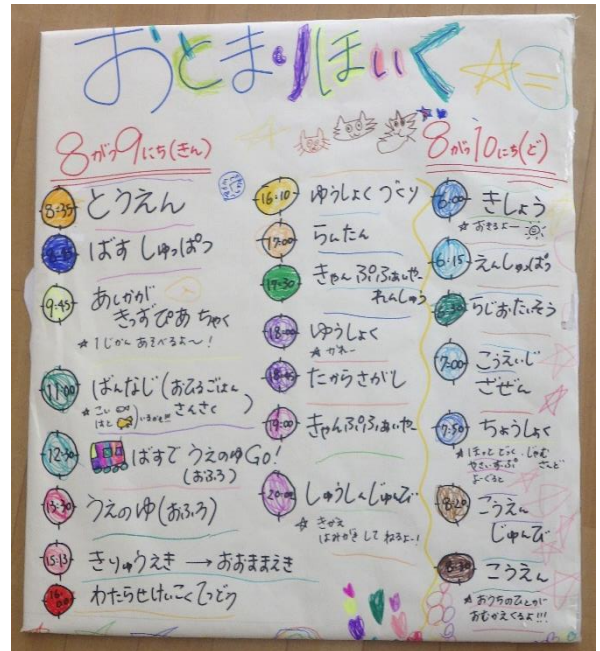 おとまりほいく
8がつ9にち(きん)
8:35 とうえん
8:45 ばす しゅっぱつ
9:45 あしかが
きっずぴあ ちゃく
☆1じかん あそべるよ〜!
11:00 ばんなじ(おひるごはん
さんさく)
☆こい
はと
いるかも!!!
12:30 ばすで うえのゆ GO!
(おふろ)
13:30 うえのゆ(おふろ)
15:13 きりゅうえき → おおままえき
16:00 わたらせけいこくてつどう
16:10 ゆうしょくづくり
17:00 らんたん
17:30 きゃんぷふぁいやー
れんしゅう
18:00 ゆうしょく
☆かれー
18:45 たからさがし
19:00 きゃんぷふぁいやー
20:00 しゅうしんじゅんび
☆きがえ
はみがきして ねるよー!
8がつ10にち(ど)
6:00 きしょう
☆おきるよー
6:15 えんしゅっぱつ
6:30 らじおたいそう
7:00 こうえいじ
ざぜん
7:50 ちょうしょく
☆ほっとどっく・じゃむ
やさいすーぷ さんど
よーぐると
8:20 こうえん
じゅんび
8:30 こうえん
☆おうちのひとが
おむかえくるよ!!!